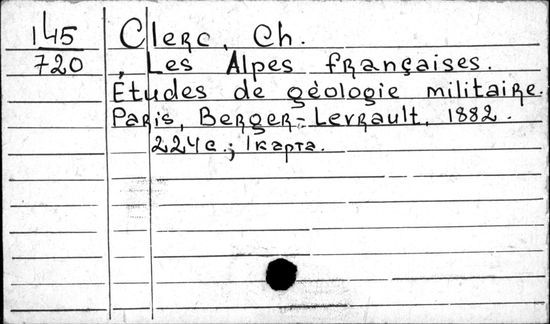 145 Clerc, Ch.
720 , Les Alpes françaises.
Études de géologie militaire.
Paris, Berger-Levrault, 1882.
224 с.; 1 карта.